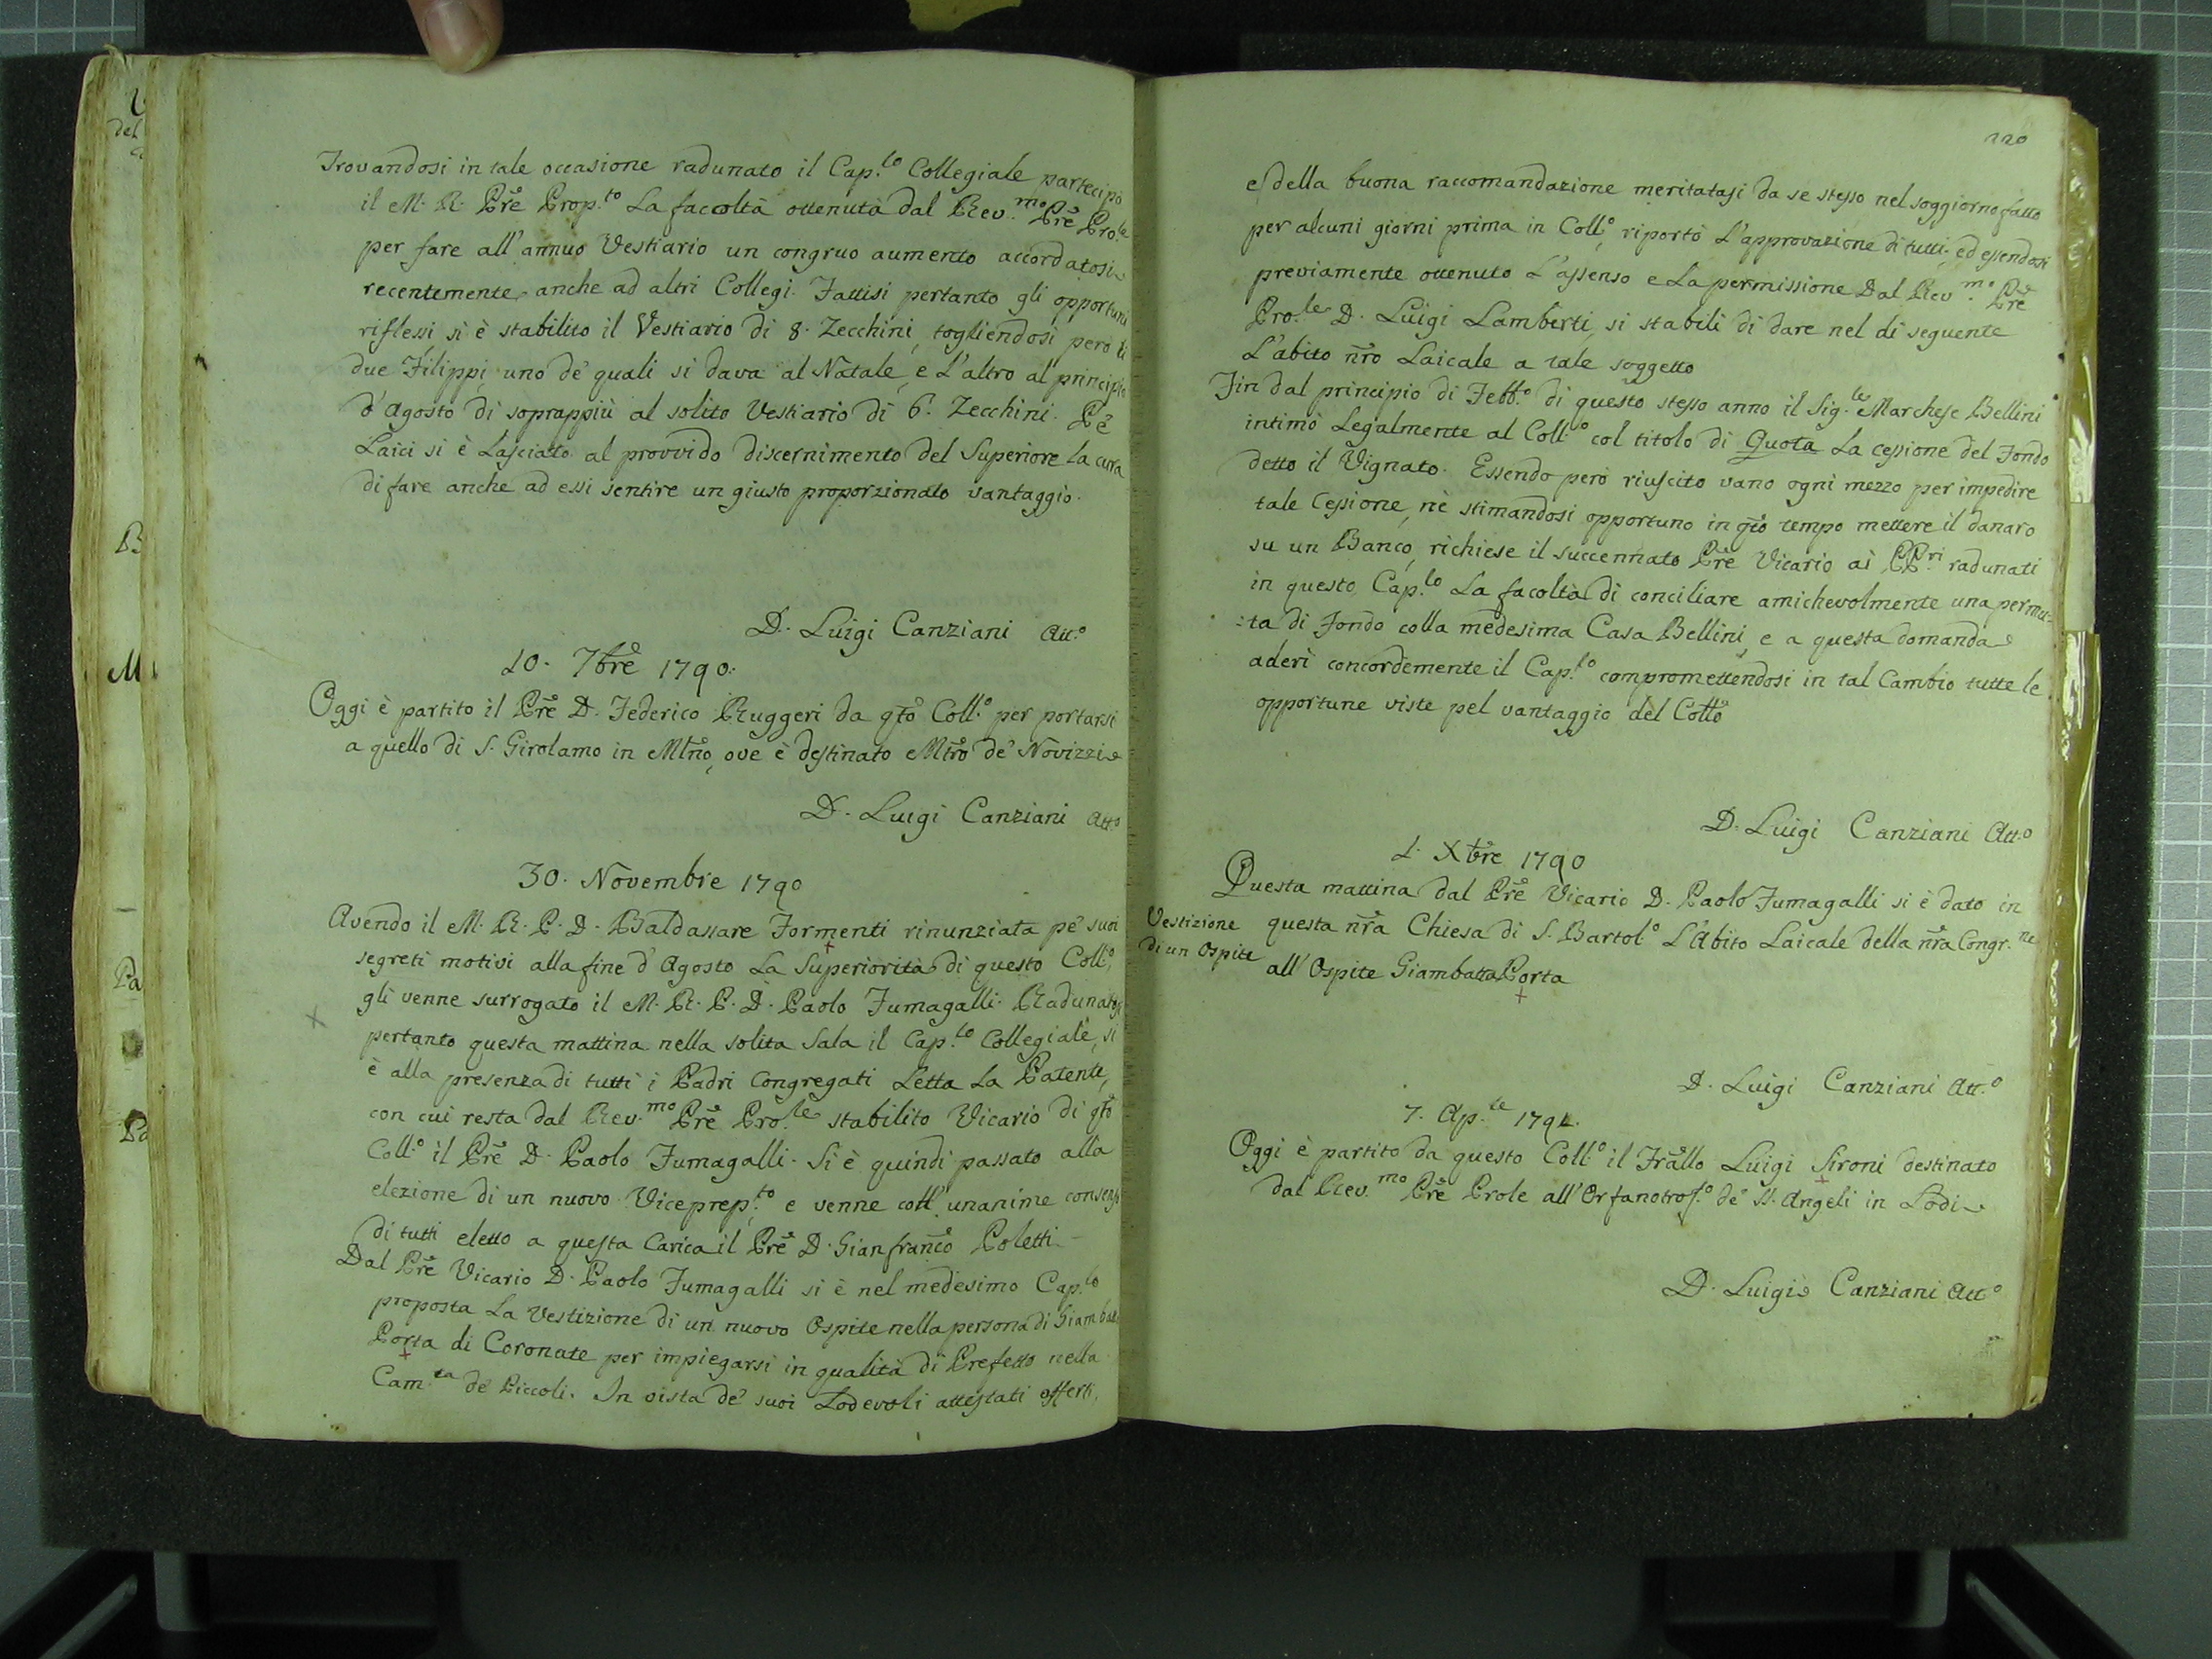 Trovandosi in tale occasione radunato il Cap.lo Collegiale partecipò
il M. R. Prē Prop.to La faccoltà ottenuta dal Rev.mo Prē Pro.le
per fare all'annuo Vestiario un congruo aumento accordatosi
recentemente anche ad altri Collegi. Fattisi pertanto gli opportuni
riflessi si è stabilito il Vestiario di 8. Zecchini, togliendosi però li
due Filippi, uno de' quali si dava al Natale, e L'altro al principio
d'Agosto di soprappiù al solito Vestiario di 6. Zecchini. Pe'
Laici si è Lasciato al provvido discernimento del Superiore la cura
di fare anche ad essi sentire un giusto proporzionato vantaggio.
D. Luigi Canziani Att.o
10. 7brē 1790.
Oggi è partito il Prē D. Federico Ruggeri da qto Coll.o per portarsi
a quello di S. Girolamo in Mlno, ove è destinato Mtro de' Novizzi
D. Luigi Canziani Att.o
30. Novembre 1790
Avendo il M. R. P. D. Baldassare Formenti rinunziata pe' suoi
segreti motivi alla fine d'Agosto La Superiorità di questo Coll.o,
gli venne surrogato il M. R. P. D. Paolo Fumagalli. Radunatosi
pertanto questa mattina nella solita Sala il Cap.lo Collegiale, si
è alla presenza di tutti i Padri Congregati Letta La Patente,
con cui resta dal Rev.mo Prē Pro.le stabilito Vicario di qto
Coll.o il Prē D. Paolo Fumagalli. Si è quindi passato alla
elezione di un nuovo Viceprep.to, e venne coll'unanime consenso
di tutti eletto a questa Carica il Prē D. Gianfranco Poletti.
Dal Prē Vicario D. Paolo Fumagalli si è nel medesimo Cap.lo
proposta La Vestizione di un nuovo Ospite nella persona di Giambatta
Porta di Coronate per impiegarsi in qualità di Prefetto nella
Cam.ta de' Piccoli. In vista de' suoi Lodevoli attestati offerti,
220
e della buona raccomandazione meritatasi da se stesso nel soggiorno fatto
per alcuni giorni prima in Coll.o, riportò L'approvazione di tutti, ed essendosi
previamente ottenuto L'assenso e La permissione Dal Rev.mo Prē
Pro.le D. Luigi Lamberti, si stabilì di dare nel dì seguente
L'abito nrō Laicale a tale soggetto
Fin dal principio di Febb.o di questo stesso anno il Sig.le Marchese Bellini
intimò Legalmente al Coll.o col titolo di Quota La cessione del Fondo
detto il Vignato. Essendo però riuscito vano ogni mezzo per impedire
tale Cessione, nè stimandosi opportuno in qto tempo mettere il danaro
su un Banco, richiese il succennato Prē Vicario ai PP.ri radunati
in questo Cap.lo La facoltà di conciliare amichevolmente una permu=
:ta di Fondo colla medesima Casa Bellini, e a questa domanda
aderì concordemente il Cap.lo compromettendosi in tal Cambio tutte le
opportune viste pel vantaggio del Collo
D. Luigi Canziani Att.o
1. Xbrē 1790
Questa mattina dal Prē Vicario D. Paolo Fumagalli si è dato in
Vestizione di un Ospite
questa nrā Chiesa di S. Bartol.o L'Abito Laicale della nrā Congr.ne
all'Ospite Giambatta Porta
D. Luigi Canziani Att.o
7. Ap.le 1791.
Oggi è partito da questo Coll.o il Frallo Luigi Sironi destinato
dal Rev.mo Prē Prole all'Orfanotrof.o de' SS. Angeli in Lodi
D. Luigi Canziani Att.o